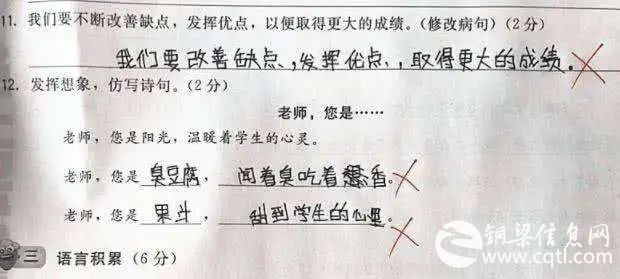 11. 我们要不断改善缺点，发挥优点，以便取得更大的成绩。（修改病句）（2分）
我们要改善缺点、，发挥优点、，取得更大的成绩。
12. 发挥想象，仿写诗句。（2分）
老师，您是……
老师，您是阳光，温暖着学生的心灵。
老师，您是 臭豆腐， 闻着臭吃着 香。
老师，您是 果汁， 甜到学生的心里。
三 语言积累（6分）
铜梁信息网
www.cqtl.com